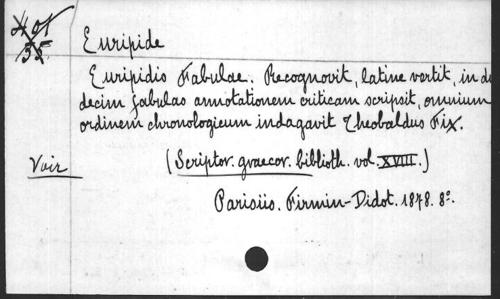 401
55
Euripide
Euripidis Fabulae. Recognovit, latine vertit, in du
decim fabulas annotationem criticam scripsit, omnium
ordinem chronologicum indagavit Theobaldus Fix.
Voir (Scriptor. graecor. biblioth. vol. XVIII.)
Parisiis. Firmin-Didot. 1878. 8º.